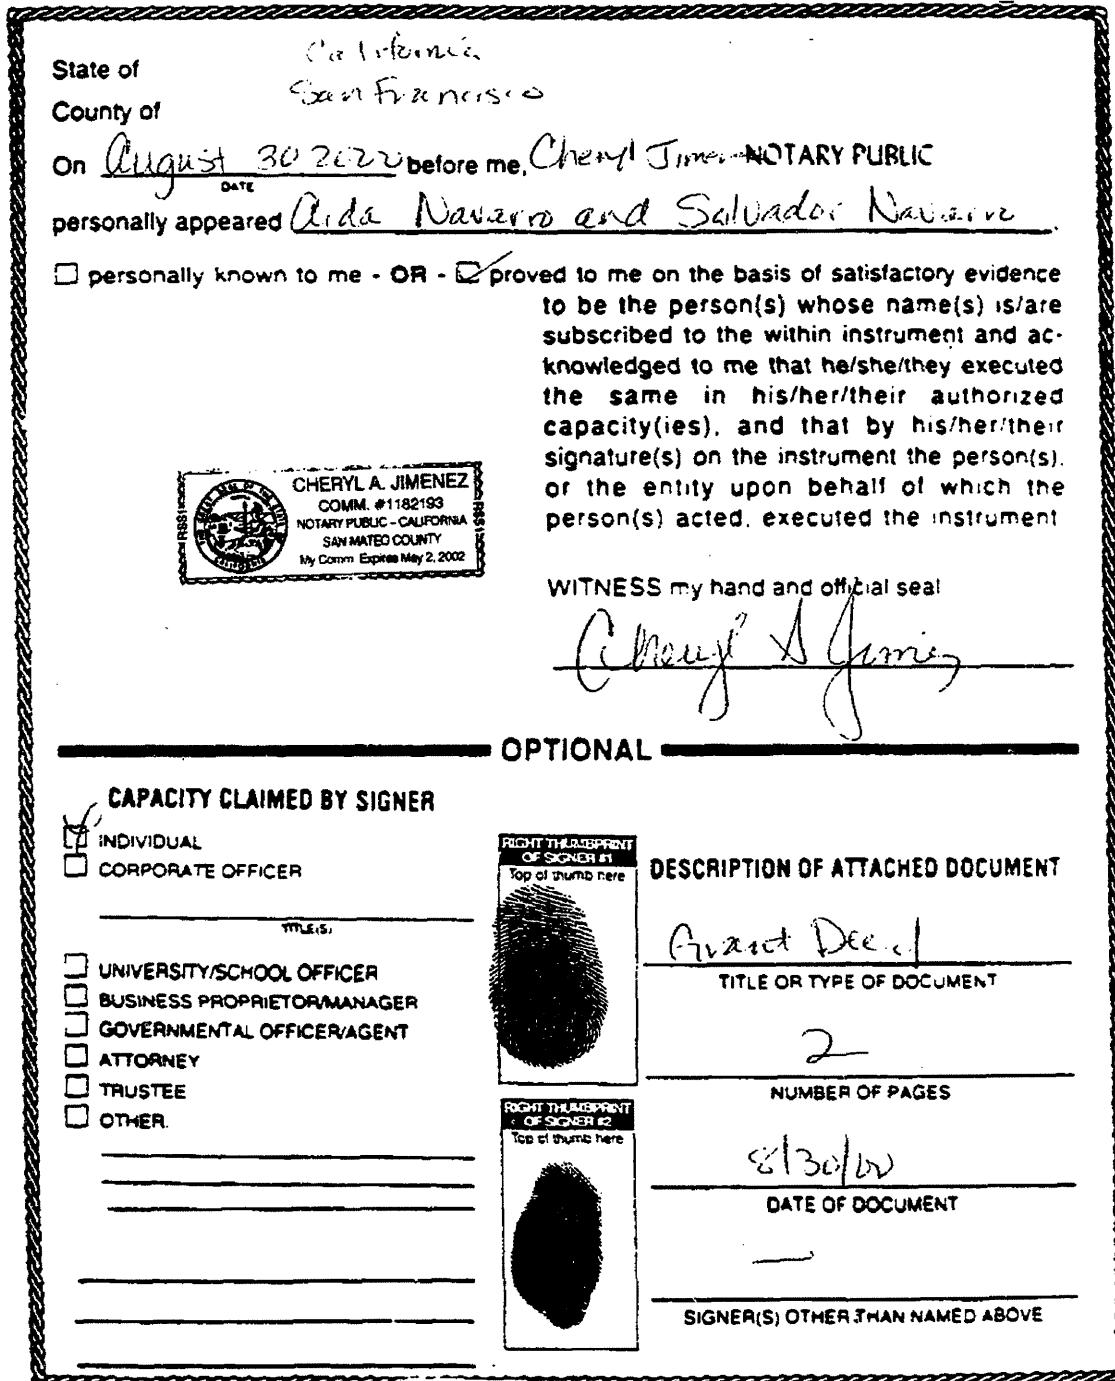 State of California
County of San Francisco
On August 30 2000 before me, Cheryl Jimen NOTARY PUBLIC
DATE
personally appeared Aida Navarro and Salvador Navarro.
personally known to me - OR - proved to me on the basis of satisfactory evidence
to be the person(s) whose name(s) is/are
subscribed to the within instrument and ac-
knowledged to me that he/she/they executed
the same in his/her/their authorized
capacity(ies), and that by his/her/their
signature(s) on the instrument the person(s),
or the entity upon behalf of which the
person(s) acted, executed the instrument
CHERYL A. JIMENEZ
COMM. #1182193
NOTARY PUBLIC - CALIFORNIA
SAN MATEO COUNTY
My Comm Expires May 2, 2002
WITNESS my hand and official seal
Cheryl A Jimenez
OPTIONAL
CAPACITY CLAIMED BY SIGNER
INDIVIDUAL
CORPORATE OFFICER
TITLE(S)
UNIVERSITY/SCHOOL OFFICER
BUSINESS PROPRIETOR/MANAGER
GOVERNMENTAL OFFICER/AGENT
ATTORNEY
TRUSTEE
OTHER.
RIGHT THUMBPRINT
OF SIGNER #1
Top of thumb here
RIGHT THUMBPRINT
OF SIGNER #2
Top of thumb here
DESCRIPTION OF ATTACHED DOCUMENT
Grant Deed
TITLE OR TYPE OF DOCUMENT
2
NUMBER OF PAGES
8/30/00
DATE OF DOCUMENT
—
SIGNER(S) OTHER THAN NAMED ABOVE